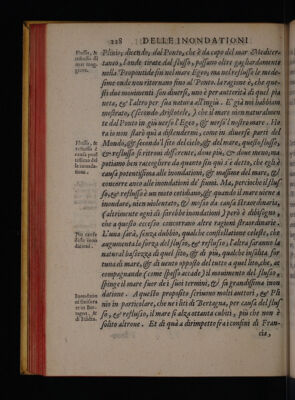 228 DELLE INONDATIONI
Flusso, & reflusso di mar maggiore.
Plinio; dicendo, dal Ponto, che è da capo del mar Mediter-
taneo, l'onde tirate dal flusso, passano oltre gagliardamente
nella Propontide fin nel mare Egeo, ma nel reflusso le mede-
sime onde non ritornano fino al Ponto. la ragione è, che que-
sti due movimenti son diuersi, uno è per auttorità di quel pia
neta, & l'altro per sua natura all'ingiù. E già noi habbiam
mostrato, (secondo Aristotele,) che il mare uien naturalmen
te dal Ponto in giù uerso l'Egeo, & uerso il nostro mare. Ho
ra io non starò quà a distendermi, come in diuerse parti del
Flusso, & reflusso è causa potentissima del le inondationi.
Mondo, & secondo l'sito del cielo, & del mare, questo flusso,
& reflusso si ritroui differente, doue più, & doue meno, ma
potiamo ben raccogliere da quanto sin quì s'è detto, che egli è
causa potentissima alle inondationi, & massime del mare, &
concorre anco alle inondationi de' fiumi. Ma, percioche il flus
so, & reflusso è un moto cotidiano, & quando il mare uiene a
inondare, uien uiolentato, & mosso da causa straordinaria,
(altrimente ogni dì sarebbe inondationi) però è dibisogno,
che a questo eccesso concorrano altre cagioni straordinarie.
L'una sarà, senza dubbio, qualche constellatione celeste, che
augumenta la forza del flusso, & reflusso, l'altra saranno la
natural bassezza di quel sito, & di più, qualche insolita for
tuna di mare, & di uento opposto del tutto a quel lito, che, ac
compagnando (come spesso accade) il mouimento del flusso,
spinge il mare fuor de i suoi termini, & fa grandissima inon
datione. A questo proposito scriuono molti auttori, & Pli
nio in particolare, che ne i liti di Bertagna, per causa del flus
so, & reflusso, il mare si alza ottanta cubiti, più che non è
solito altroue. Et di quà a dirimpetto fra i confini di Fran-
cia,